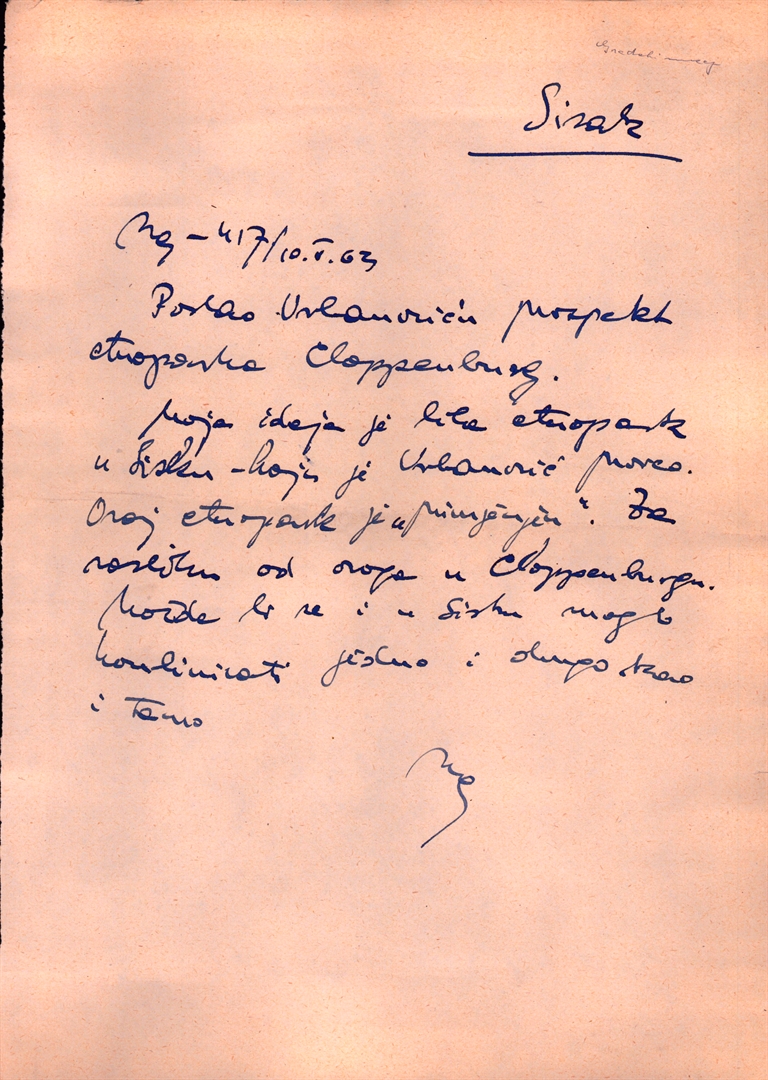 Gradski muzej
Sisak
Mg – 417/10.V.63
Poslao Urbanoviću prospekt
etnoparka Cloppenburg.
Moja ideja je bila etnopark
u Sisku – koju je Urbanović proveo.
Ovaj etnopark je „primjenjen“. Za
razliku od ovoga u Cloppenburgu.
Možda bi se i u Sisku moglo
kombinirati jedno i drugo kao
i tamo
Mg